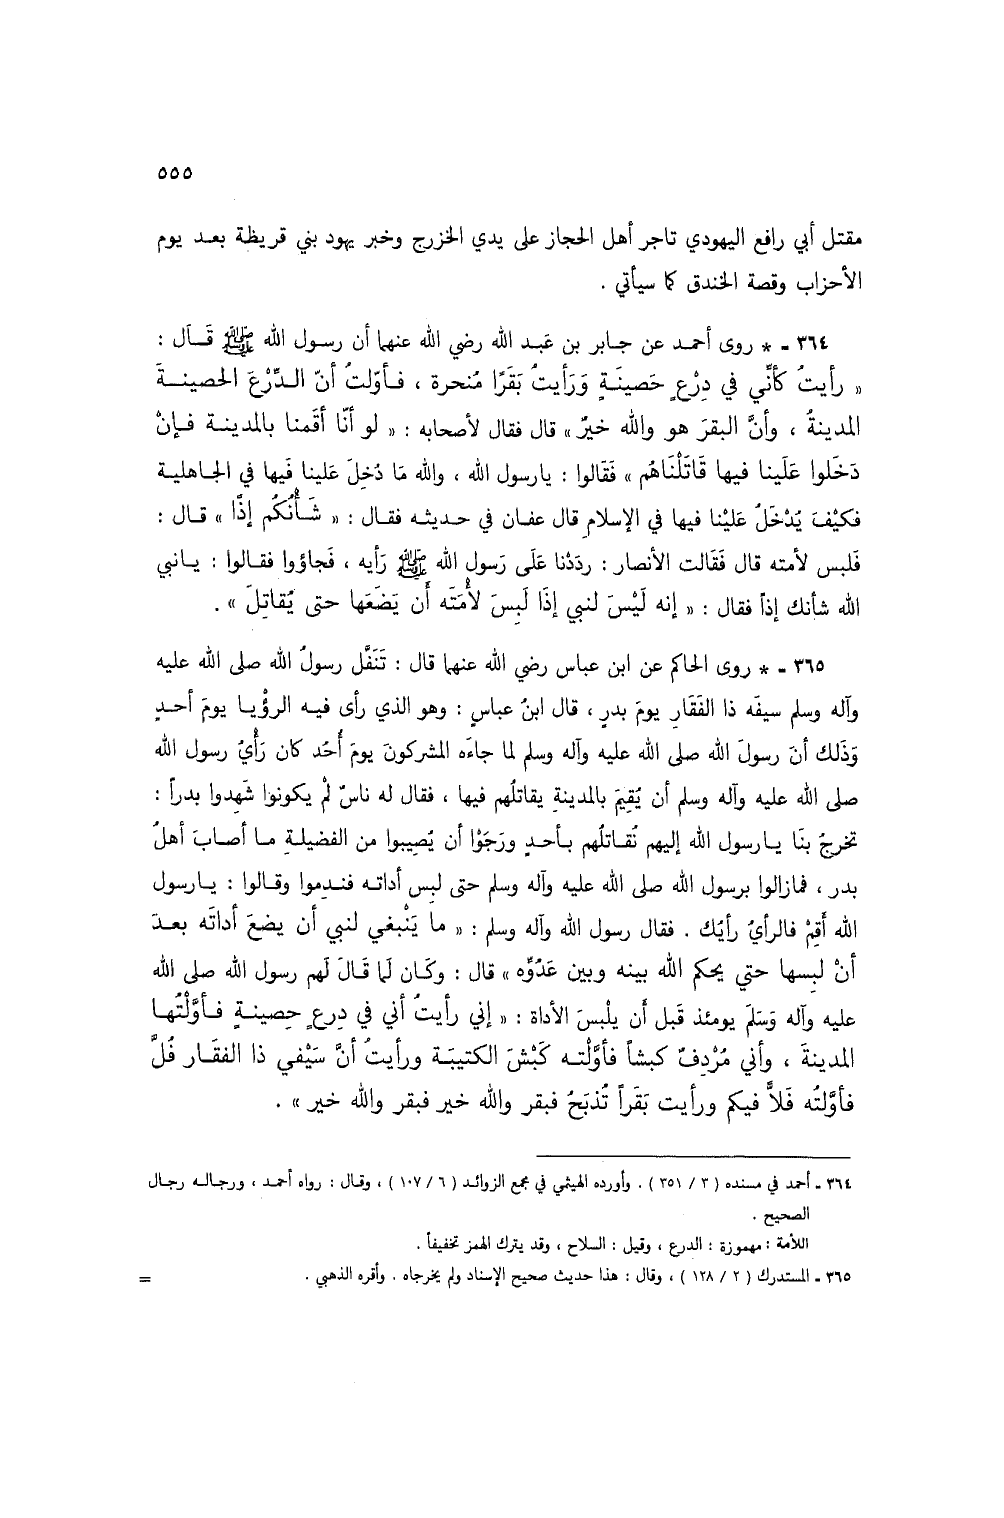 ٥٥٥
مقتل أبي رافع اليهودي تاجر أهل الحجاز على يدي الخزرج وخبر يهود بني قريظة بعد يوم
الأحزاب وقصة الخندق كما سيأتي .
٣٦٤ - * روى أحمد عن جابر بن عبد الله رضي الله عنهما أن رسول الله ﷺ قَال :
« رأيتُ كأنِّي في دِرْعٍ حَصينَةٍ وَرَأيتُ بَقَرًا مُنحرة ، فأوّلتُ أنّ الدِّرْعَ الحصينةَ
المدينةُ ، وأنَّ البقرَ هو والله خيرٌ » قال فقال لأصحابه : « لو أنّا أقَمنا بالمدينة فإنْ
دَخَلوا عَلَينا فيها قَاتَلْنَاهُم » فَقَالوا : يارسول الله ، والله مَا دُخِلَ عَلينا فَيها في الجاهلية
فكيْفَ يُدْخَلُ عَليْنا فيها في الإسلامِ قال عفان في حديثه فقال : « شَأنُكُم إذًا » قال :
فَلبس لأمته قال فَقَالت الأنصار : ردَدْنا عَلَى رَسول الله ﷺ رَأيه ، فَجاؤوا فقالوا : يانبي
الله شأنك إذاً فقال : « إنه لَيْسَ لنبي إذَا لَبِسَ لأْمَتَه أَن يَضَعَها حتى يُقاتِلَ » .
٣٦٥ - * روى الحاكم عن ابن عباس رضي الله عنهما قال : تَنَفَّل رسولُ الله صلى الله عليه
وآله وسلم سيفَه ذا الفَقَارِ يومَ بدرٍ ، قال ابنُ عباسٍ : وهو الذي رأى فيه الرؤْيا يومَ أحدٍ
وَذَلك أنَ رسولَ الله صلى الله عليه وآله وسلم لما جاءَه المشركونَ يومَ أُحُد كان رَأْيُ رسول الله
صلى الله عليه وآله وسلم أن يُقِيَم بالمدينةِ يقاتلُهم فيها ، فقال له ناسٌ لمْ يكونوا شَهِدوا بدراً :
تخرجُ بنَا يارسول الله إليهم نُقاتلُهم بأحدٍ ورَجَوْا أن يُصِيبوا من الفضيلةِ ما أصابَ أهلُ
بدر ، فمازالوا برسول الله صلى الله عليه وآله وسلم حتى لبس أداته فندموا وقالوا : يارسول
الله أقِمْ فالرأيُ رأيُك . فقال رسول الله وآله وسلم : « ما يَنْبغي لنبي أن يضعَ أداتَه بعدَ
أنْ لبسها حتي يحكم الله بينه وبين عَدُوِّه » قال : وكَان لَما قَالَ لَهم رسول الله صلى الله
عليه وآله وَسَلَم يومئذ قَبل أن يلْبسَ الأداة : « إني رأيتُ أني في دِرعٍ حِصينةٍ فأوَّلْتُها
المدينةَ ، وأني مُرْدِفٌ كبشاً فأوَّلته كَبْشَ الكتيبَة ورأيتُ أنَّ سَيْفي ذا الفقَار فُلَّ
فأوَّلتُه فَلاًّ فيكم ورأيت بَقَراً تُذبَحُ فبقر والله خير فبقر والله خير » .
٣٦٤ - أحمد في مسنده ( ٣ / ٣٥١ ) . وأورده الهيثمي في مجمع الزوائد ( ٦ / ١٠٧ ) ، وقال : رواه أحمد ، ورجاله رجال
الصحيح .
اللأمة : مهموزة : الدرع ، وقيل : السلاح ، وقد يترك الهمز تخفيفاً .
٣٦٥ - المستدرك ( ٢ / ١٢٨ ) ، وقال : هذا حديث صحيح الإسناد ولم يخرجاه . وأقره الذهبي . =